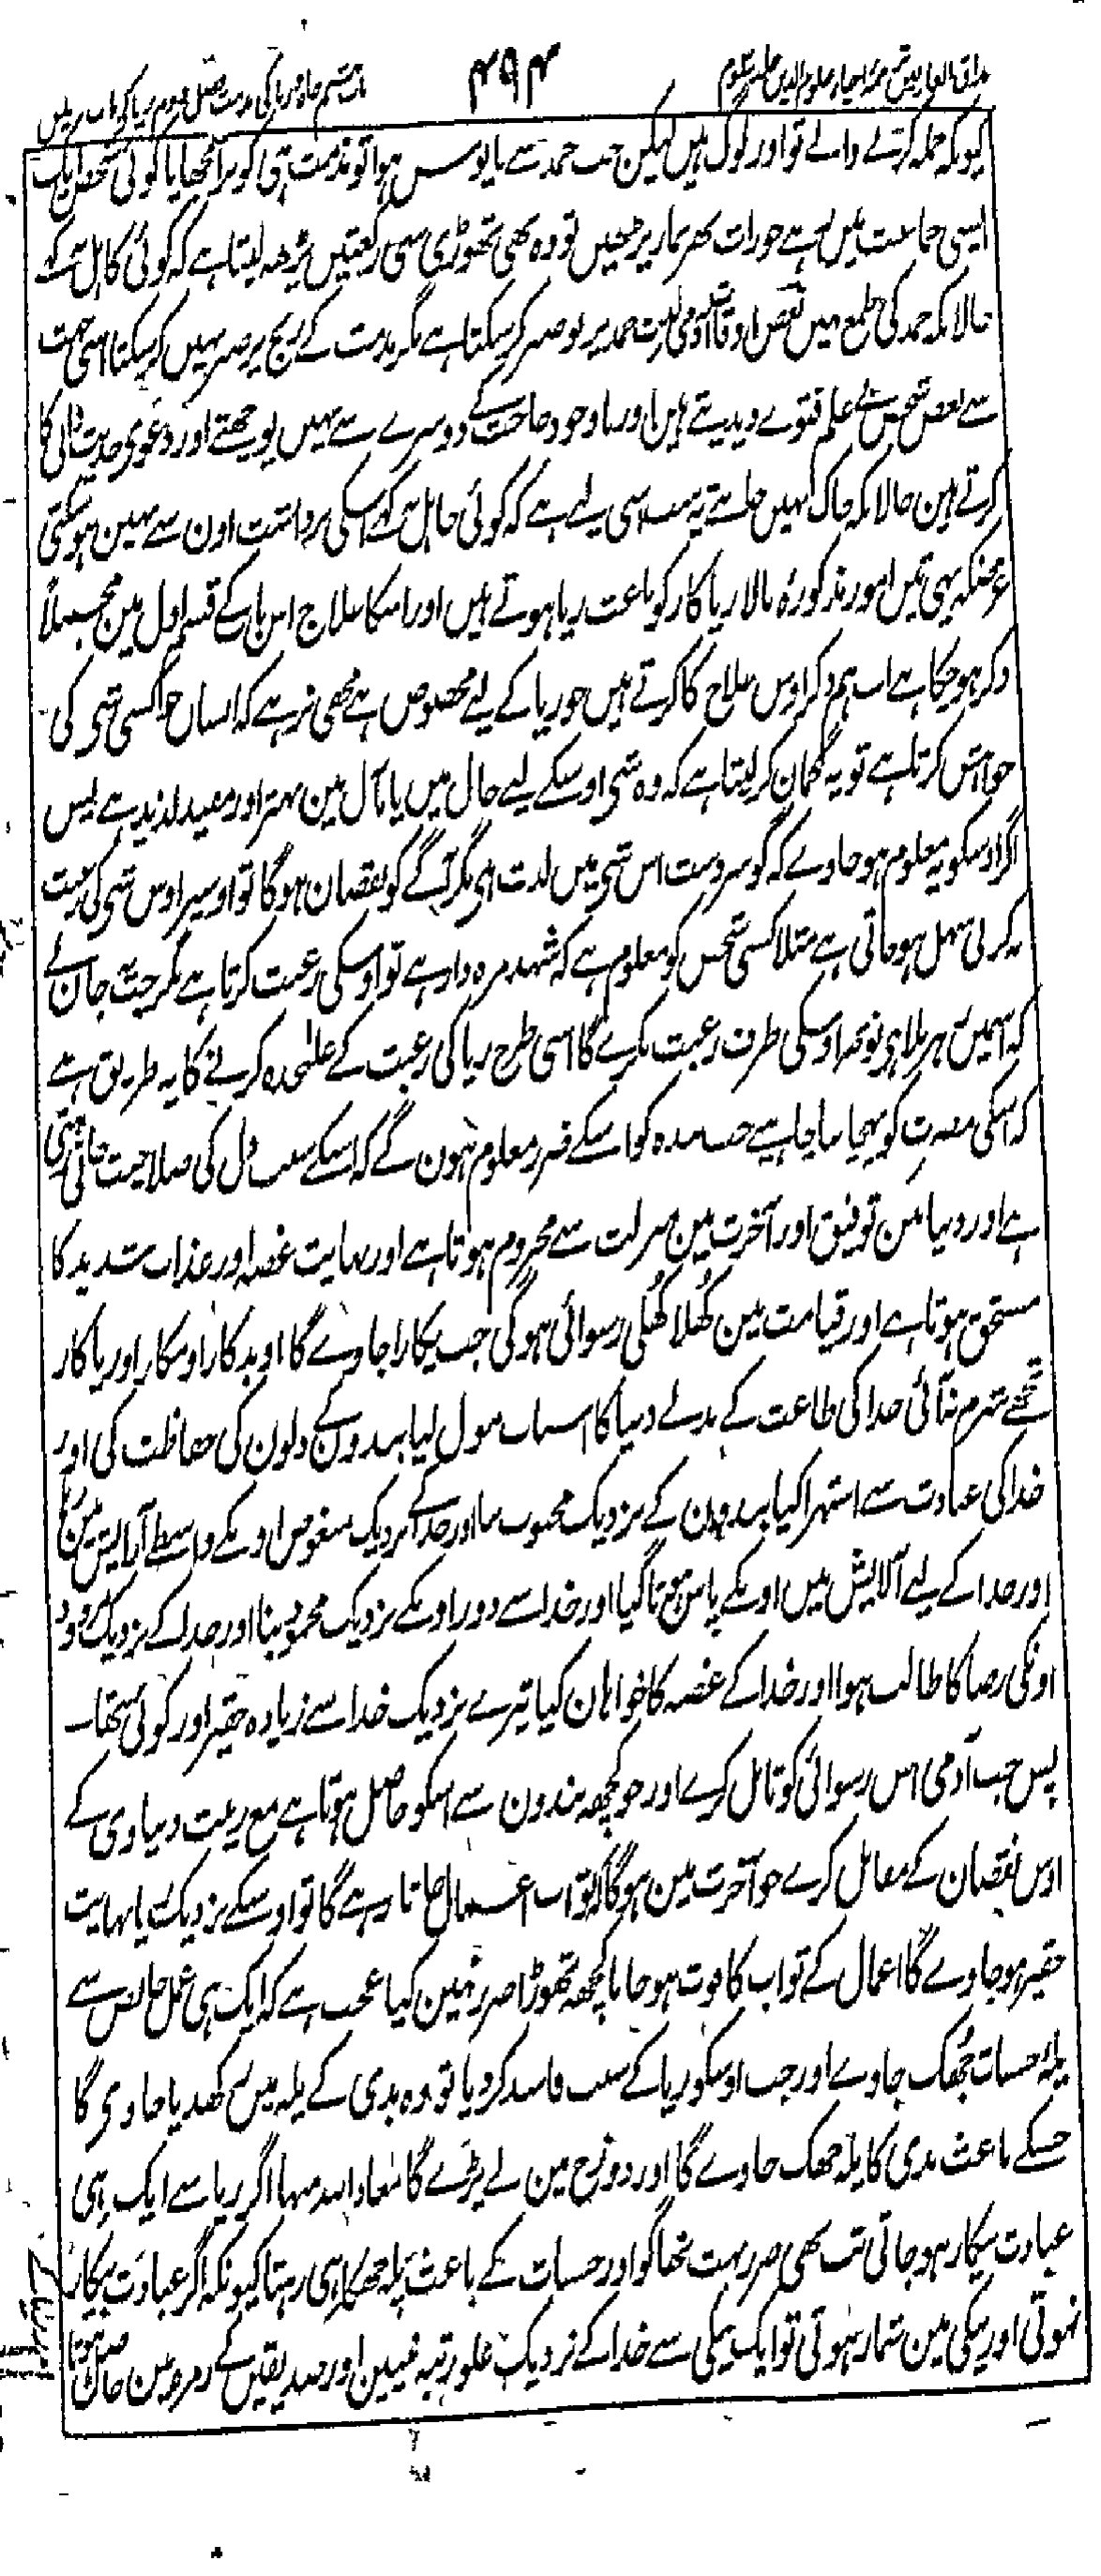 مذاق العارفین ترجمہ احیاء علوم الدین جلد سوم
۴۹۴
باب ہشتم جاہ و ریا کی مذمت فصل دوم ریا کی
کیونکہ حملہ کرنے والے تو اور لوگ ہیں لیکن جب حمد سے مایوس ہوا تو مذمت ہی کو برا سمجھا یا کوئی شخص ایک
ایسی جماعت میں ہے جو رات بھر نماز پڑھیں تو وہ بھی تھوڑی سی رکعتیں پڑھ لیتا ہے کہ کوئی کاہل نہ کہے
حالانکہ حمد کی طمع میں بعض اوقات آدمی لذت حمد پر تو صبر کر سکتا ہے مگر مذمت کے رنج پر صبر نہیں کر سکتا اسی جہت
سے بعض شخص بے علم فتوے دیدیتے ہیں اور باوجود حاجت کے دوسرے سے نہیں پوچھتے اور دعوی حدیث دانی کا
کرتے ہین حالانکہ خاک نہیں جانتے یہ سب اسی لیے ہے کہ کوئی جاہل نہ کہے اسکی برداشت اون سے نہین ہو سکتی
غرضکہ یہی تین امور مذکورۂ بالا ریاکار کو باعث ریا ہوتے ہیں اور اسکا علاج اس باب کے قسم اول مین مجملاً
ذکر ہو چکا ہے اب ہم ذکر اوس علاج کا کرتے ہیں جو ریا کے لیے مخصوص ہے مخفی نرہے کہ انسان جو اکسی شی کی
خواہش کرتا ہے تو یہ گمان کر لیتا ہے کہ وہ شی اوسکے لیے حال میں یا مآل مین بہتر اور مفید اور لذیذ ہے پس
اگر اوسکو یہ معلوم ہو جاوے کہ گو سردست اس شی میں لذت ہی مگر آگے کو نقصان ہوگا تو اوسپر اوس شی کی رغبت
نہ کرنی سہل ہو جاتی ہے مثلاً کسی شخص کو معلوم ہے کہ شہد مزہ دار ہے تو اوسکی رغبت کرتا ہے مگر جب جان لے
کہ اسمیں زہر ملا ہی تو پھر اوسکی طرف رغبت نکرے گا اسی طرح ریا کی رغبت کے علٰحدہ کرنے کا یہ طریق ہے
کہ اسکی مضرت کو پہچاننا چاہیے جب بندہ کو اسکے ضرر معلوم ہون گے کہ اسکے سبب دل کی صلاحیت جاتی رہتی
ہے اور دنیا مین توفیق اور آخرت مین منزلت سے محروم ہوتا ہے اور نہایت غصہ اور عذاب شدید کا
مستحق ہوتا ہے اور قیامت مین کھلا کھلی رسوائی ہوگی جب پکارا جاوے گا او بدکار او مکار او ریاکار
تجھے شرم نہ آئی خدا کی طاعت کے بدلے دنیا کا اسباب مول لیا بندون کے دلون کی حفاظت کی اور
خدا کی عبادت سے استہزا کیا بندون کے نزدیک محبوب بنا اور خدا کے نزدیک مبغوض اونکے واسطے آرایش مین رہا
اور خدا کے لیے آلایش میں اونکے پاس ہوتا گیا اور خدا سے دور اونکے نزدیک محمود بنا اور خدا کے نزدیک مردود
اونکی رضا کا طالب ہوا اور خدا کے غصہ کا خواہان کیا تیرے نزدیک خدا سے زیادہ حقیر اور کوئی نتھا۔
پس جب آدمی اس رسوائی کو تامل کرے اور جو کچھ بندون سے اسکو حاصل ہوتا ہے مع زینت دنیاوی کے
اوس نقصان کے مقابل کرے جو آخرت مین ہوگا کہ ثواب اعمال جاتا رہے گا تو اوسکے نزدیک ریا نہایت
حقیر ہو جاوے گا اعمال کے ثواب کا فوت ہو جانا کچھ تھوڑا ضرر نہین کیا عجب ہے کہ ایک ہی عمل خالص سے
پلۂ حسنات جھک جاوے اور جب اوسکو ریا کے سبب فاسد کر دیا تو وہ بدی کے پلہ میں رکھدیا جاوی گا
جسکے باعث بدی کا پلہ جھک جاوے گا اور دوزخ مین لے پڑے گا معاذ اللہ منہا اگر ریا سے ایک ہی
عبادت بیکار ہو جاتی تب بھی ضرر بہت تھا گو اور حسنات کے باعث پلہ جھکا ہی رہتا کیونکہ اگر عبادت بیکار
نہوتی اور نیکی مین شمار ہوتی تو ایک نیکی سے خدا کے نزدیک علو رتبہ نبیین اور صدیقین کے زمرہ مین حاصل ہوتا